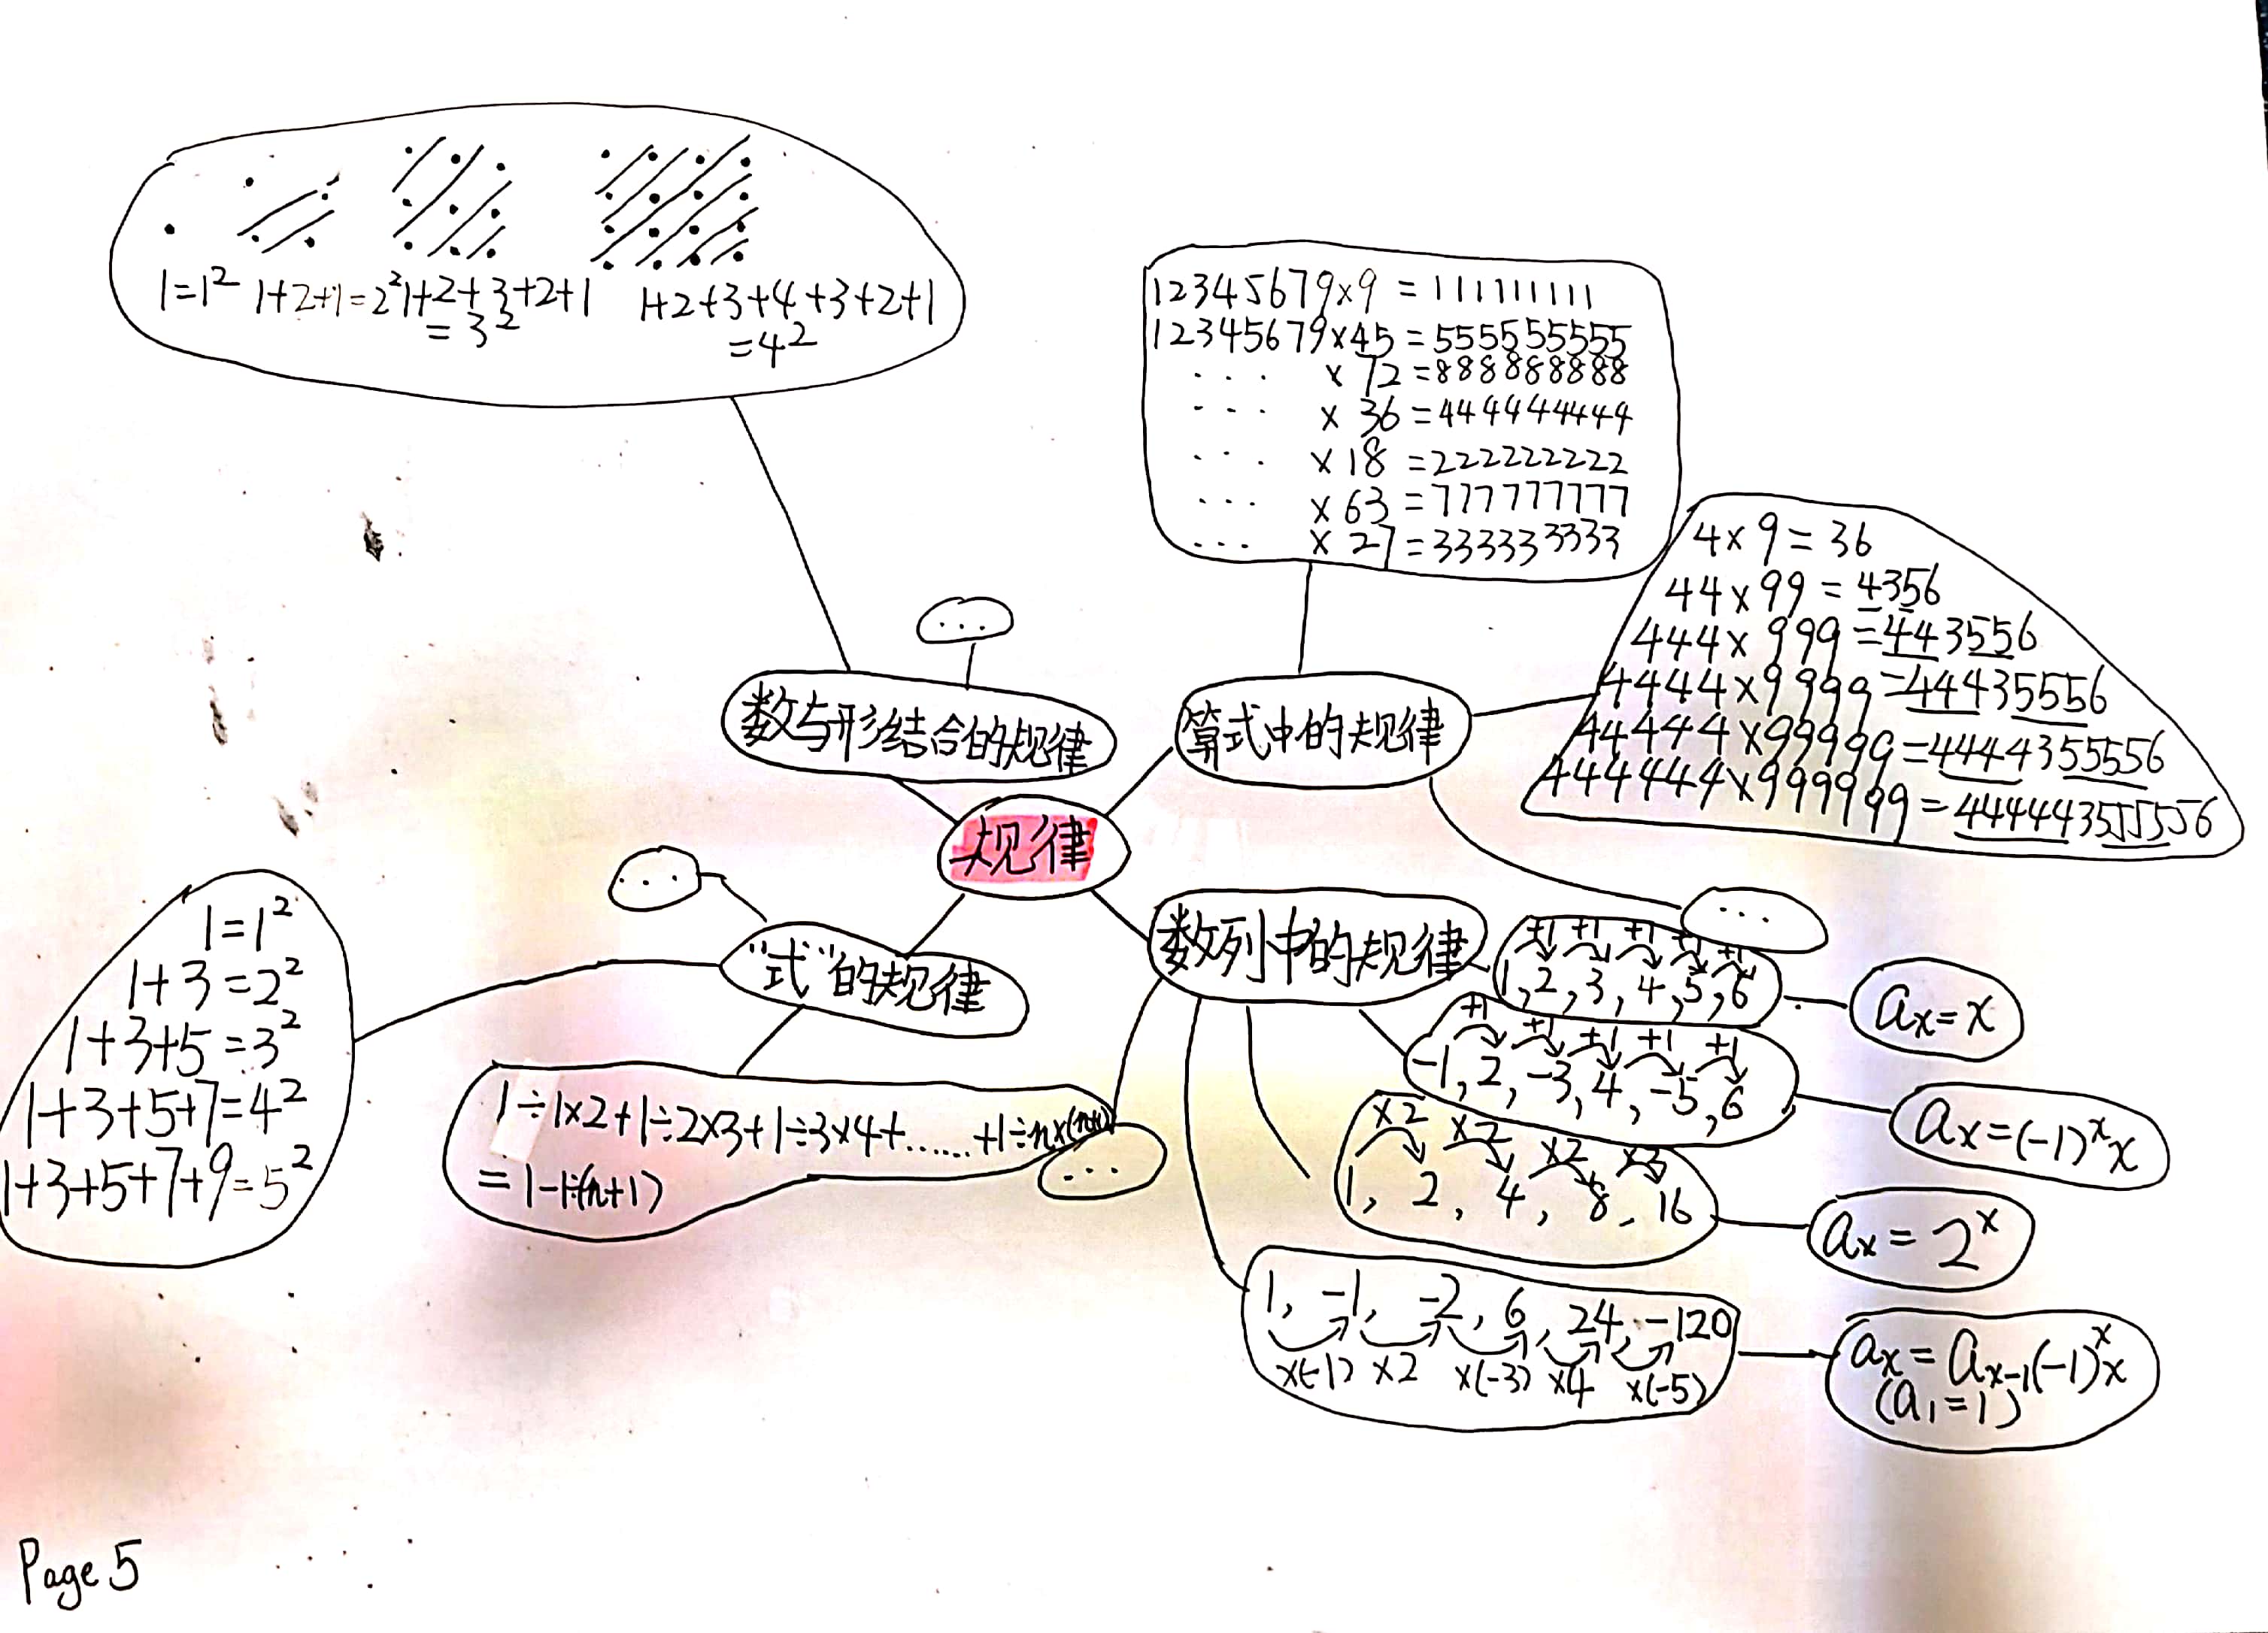 1=1²
1+2+1=2²
1+2+3+2+1
=3²
1+2+3+4+3+2+1
=4²
12345679×9=111111111
12345679×45=555555555
... ×72=888888888
... ×36=444444444
... ×18=222222222
... ×63=777777777
... ×27=333333333
4×9=36
44×99=4356
444×999=443556
4444×9999=44435556
44444×99999=4444355556
444444×999999=444443555556
...
数与形结合的规律
算式中的规律
规律
...
"式"的规律
数列中的规律
...
1=1²
1+3=2²
1+3+5=3²
1+3+5+7=4²
1+3+5+7+9=5²
1÷1×2+1÷2×3+1÷3×4+……+1÷n×(n+1)
=1-1÷(n+1)
...
+1 +1 +1 +1 +1
1,2,3,4,5,6
aₓ=x
+1 +1 +1 +1 +1
-1,2,-3,4,-5,6
aₓ=(-1)ˣx
×2 ×2 ×2 ×3
1, 2, 4, 8, 16
aₓ=2ˣ
1, -1, -2, 6, 24, -120
×(-1) ×2 ×(-3) ×4 ×(-5)
aₓ=aₓ₋₁(-1)ˣx
(a₁=1)
Page 5